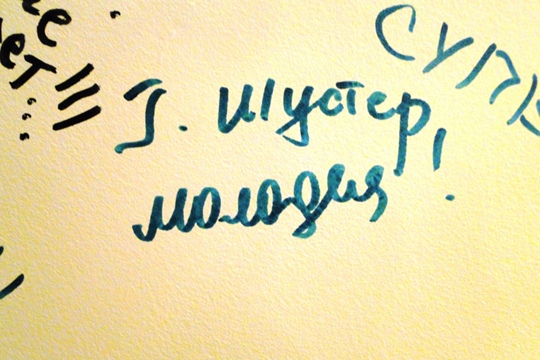 ет!!!
Г. Шустер,
молодец!